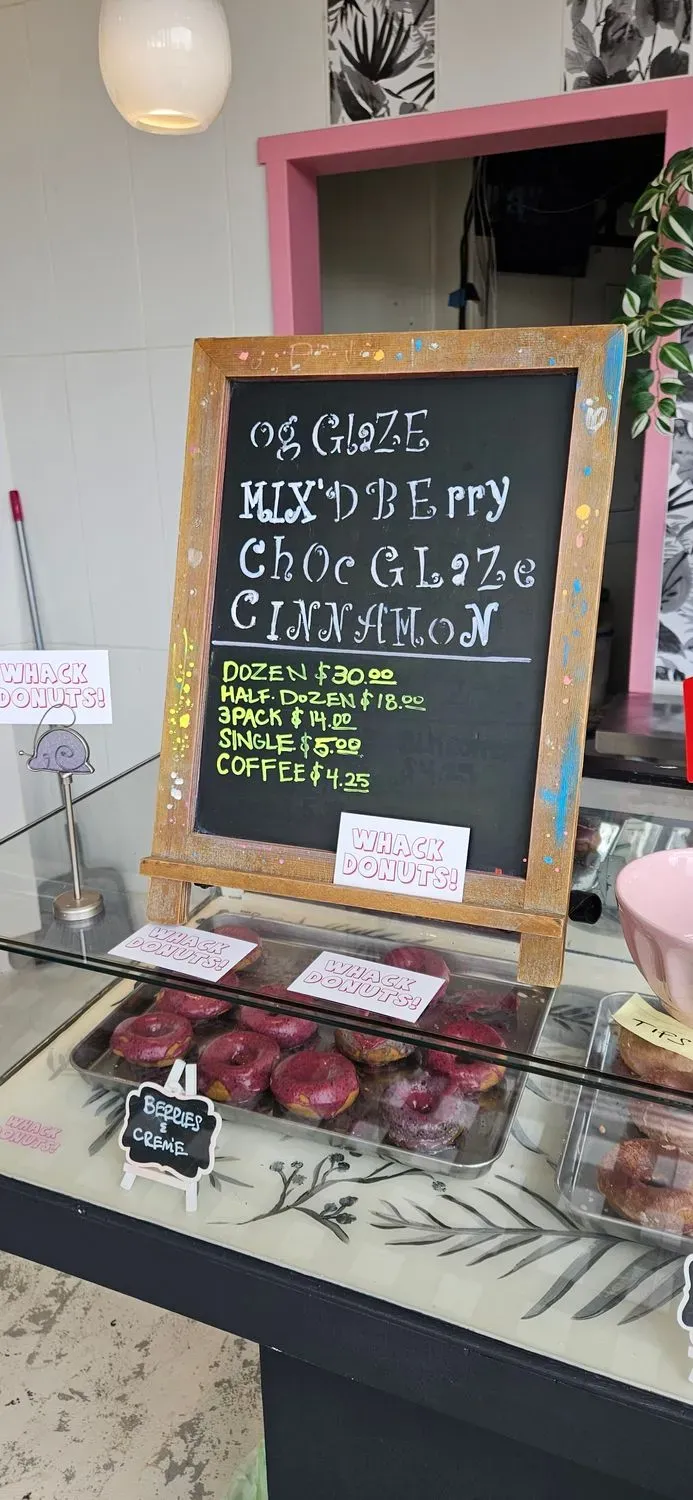 og GlaZE
MIX'D BErry
ChOc GLaZe
CINNAMoN
DOZEN $30.00
HALF-DOZEN $18.00
3PACK $14.00
SINGLE $5.00
COFFEE $4.25
WHACK
DONUTS!
WHACK
DONUTS!
WHACK
DONUTS!
WHACK
DONUTS!
TIPS
BERRIES
&
CREME
WHACK
DONUTS!